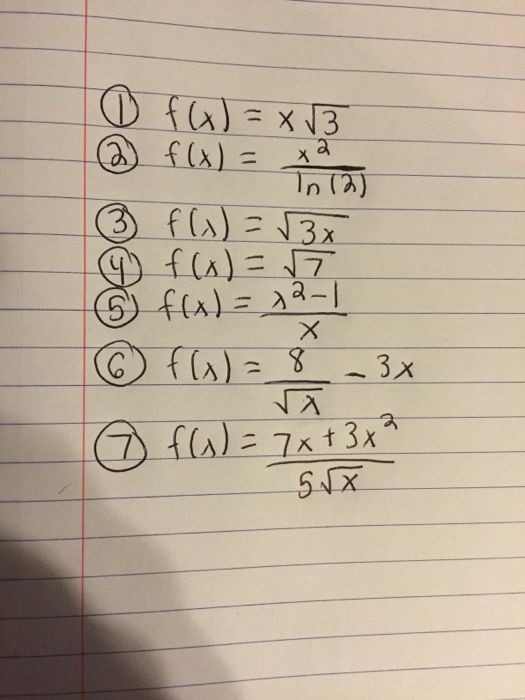 ① f(x) = x√3
② f(x) = x² / ln(2)
③ f(x) = √3x
④ f(x) = √7
⑤ f(x) = x²-1 / x
⑥ f(x) = 8 / √x - 3x
⑦ f(x) = 7x + 3x² / 5√x